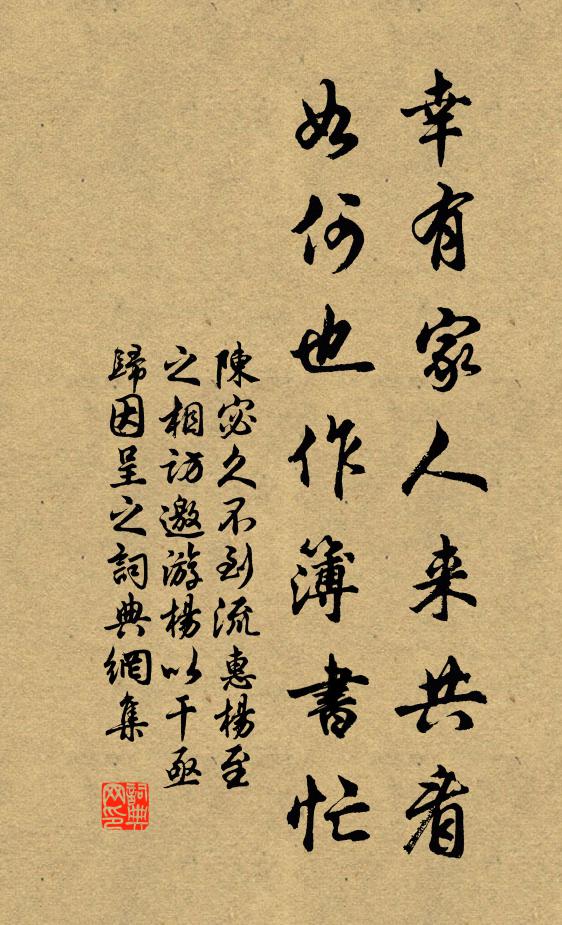 幸有家人来共看
如何也作簿書忙
陳宓久不到流惠楊至
之相訪邀游楊以干亟
歸因呈之詞典網集
詞典
网印